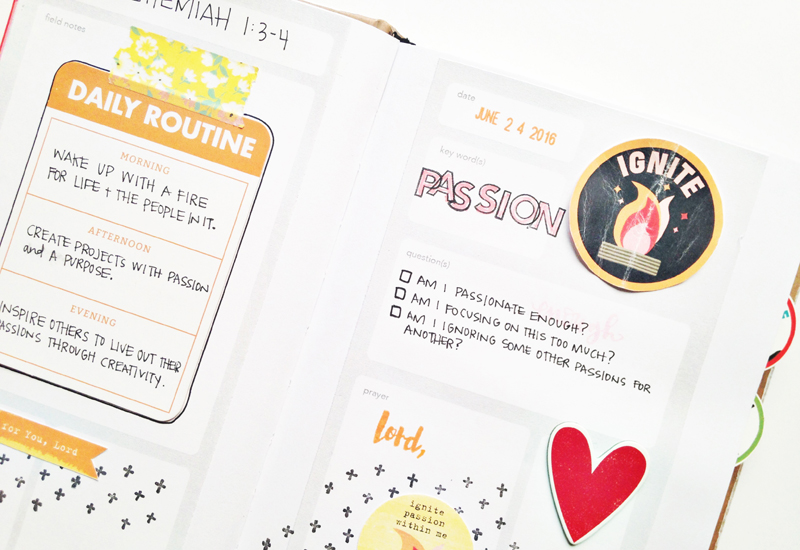 1:3-4
field notes
DAILY ROUTINE
MORNING
WAKE UP WITH A FIRE
FOR LIFE + THE PEOPLE IN IT.
AFTERNOON
CREATE PROJECTS WITH PASSION
and A PURPOSE.
EVENING
INSPIRE OTHERS TO LIVE OUT THEIR
PASSIONS THROUGH CREATIVITY.
for You, Lord
date
JUNE 24 2016
key word(s)
PASSION
IGNITE
question(s)
AM I PASSIONATE ENOUGH?
AM I FOCUSING ON THIS TOO MUCH?
AM I IGNORING SOME OTHER PASSIONS FOR
ANOTHER?
prayer
lord,
ignite
passion
within me